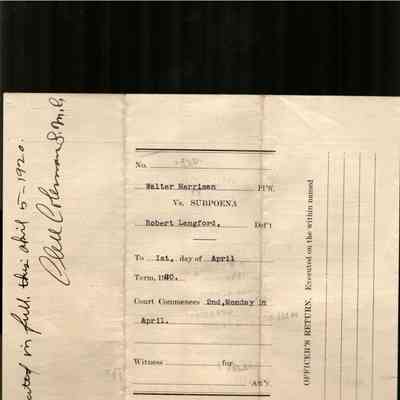 in full this april 5-1920.
No.
Walter Harriman Pl'ff.
Vs. SUBPOENA
Robert Langford, Def't
To 1st, day of April
Term, 1920.
Court Commences 2nd, Monday in
April.
Witness for
Att'y.
OFFICER'S RETURN. Executed on the within named